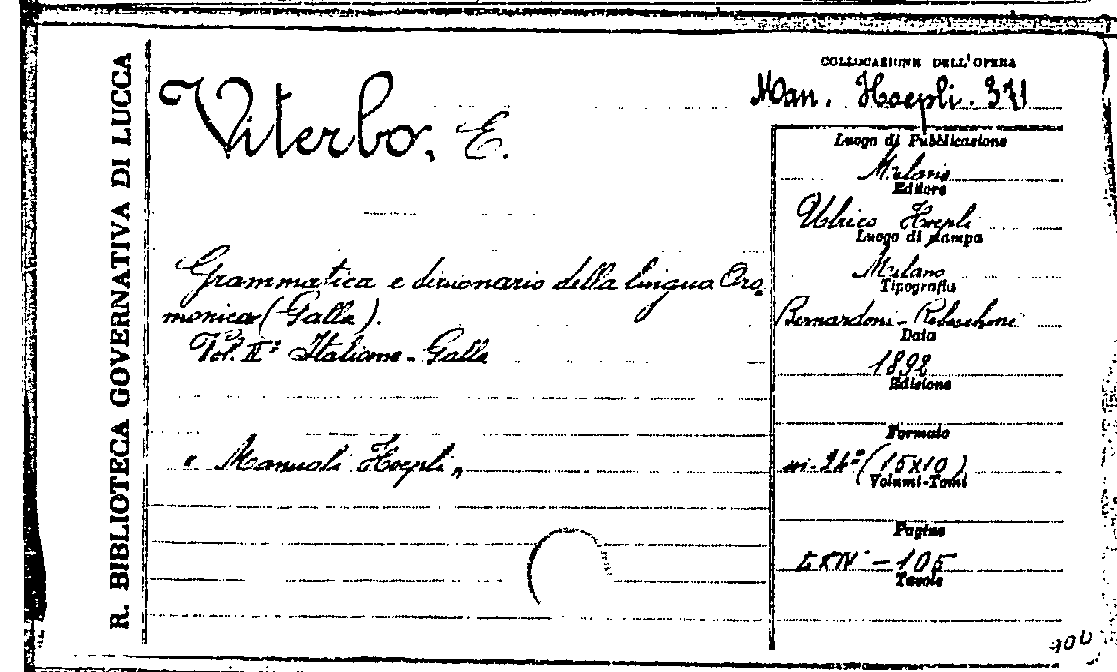 R. BIBLIOTECA GOVERNATIVA DI LUCCA
Viterbo, E.
Grammatica e dizionario della lingua Oro-
monica (Galla).
Vol. IIº Italiano - Galla
" Manuali Hoepli "
COLLOCAZIONE DELL'OPERA
Man. Hoepli. 371
Luogo di Pubblicazione
Milano
Editore
Ulrico Hoepli
Luogo di stampa
Milano
Tipografia
Bernardoni - Rebeschini
Data
1892
Edizione
Formato
in-24º (15x10)
Volumi-Tomi
Pagine
- 105
Tavole